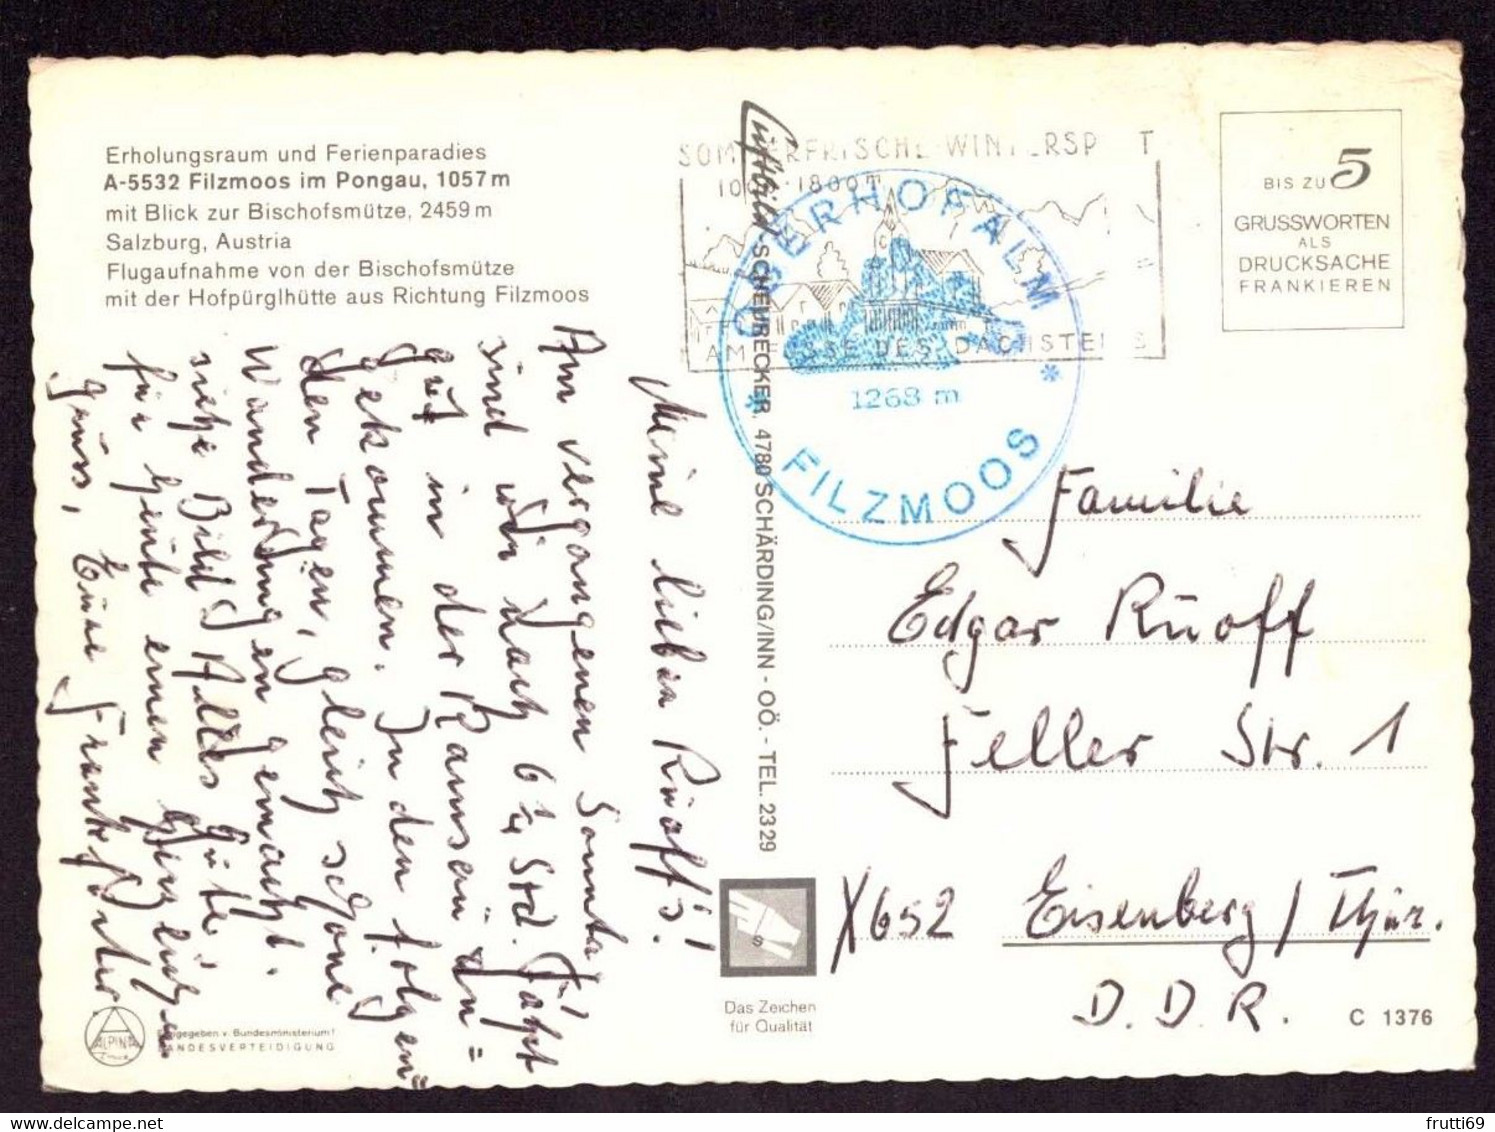 Erholungsraum und Ferienparadies
A-5532 Filzmoos im Pongau, 1057 m
mit Blick zur Bischofsmütze, 2459 m
Salzburg, Austria
Flugaufnahme von der Bischofsmütze
mit der Hofpürglhütte aus Richtung Filzmoos
Meine lieben Rüoff's!
Am vergangenen Sonntag
sind wir nach 6 1/4 Std. Fahrt
gut in der Ramsau an=
gekommen. In den folgen=
den Tagen, gleich schöne
Wanderungen gemacht.
siehe Bild! Alles Gute
für heute einen herzlichen
Gruss, Eure Frankfurter
Luftbild SCHEURECKER, 4780 SCHÄRDING/INN - OÖ. - TEL. 2329
SOMMERFRISCHE WINTERSPORT
AM FUSSE DES DACHSTEINS
OBERHOFALM
1268 m
FILZMOOS
BIS ZU 5
GRUSSWORTEN
ALS
DRUCKSACHE
FRANKIEREN
Familie
Edgar Rüoff
Feller Str. 1
X652 Eisenberg / Thür.
D. D. R.
C 1376
Das Zeichen
für Qualität
ALPINA
gegeben v. Bundesministerium f
LANDESVERTEIDIGUNG
frutti69